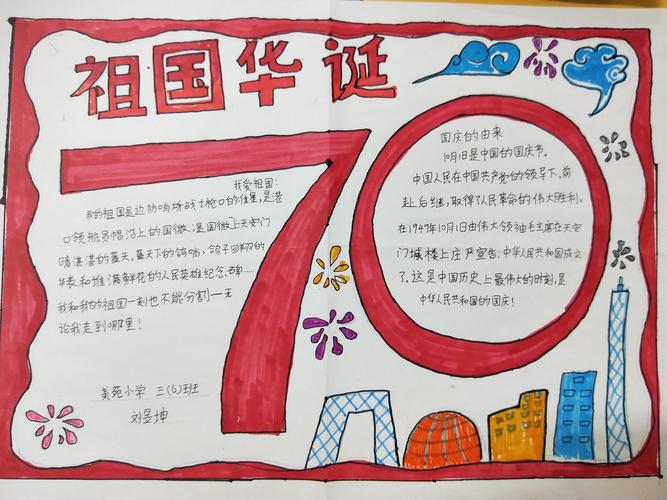 祖国华诞
70
我爱祖国:
我的祖国是边防哨所战士枪口的准星,是港
口领航员帽沿上的国徽,是国徽上天安门
晴湛湛的蓝天,蓝天下的鸽哨,鸽子回翔的
华表和堆满鲜花的人民英雄纪念碑……
我和我的祖国一刻也不能分割一无
论我走到哪里!
美苑小学 三(6)班
刘昱坤
国庆的由来
10月1日是中国的国庆节。
中国人民在中国共产党的领导下,前
赴后继,取得了人民革命的伟大胜利。
在1949年10月1日由伟大领袖毛主席在天安
门城楼上庄严宣告:中华人民共和国成立
了,这是中国历史上最伟大的时刻,是
中华人民共和国的国庆!